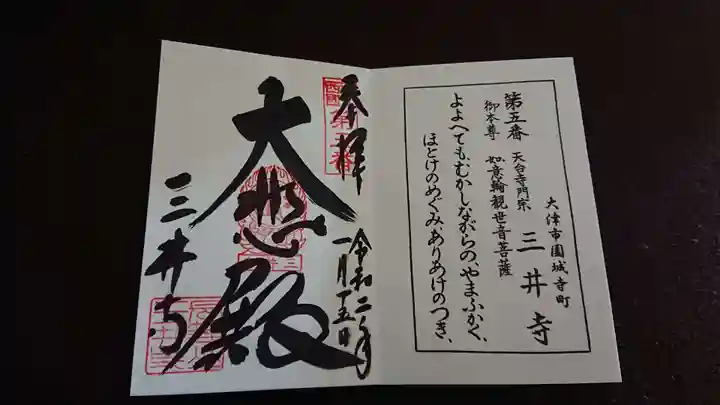 大津市園城寺町
第五番 天台寺門宗 三井寺
御本尊 如意輪観世音菩薩
よよへてもむかしながらの、やまふかく、
ほとけのめぐみありあけのつき、
奉拝
西國
第五番
令和二年
一月十五日
大悲殿
三井寺